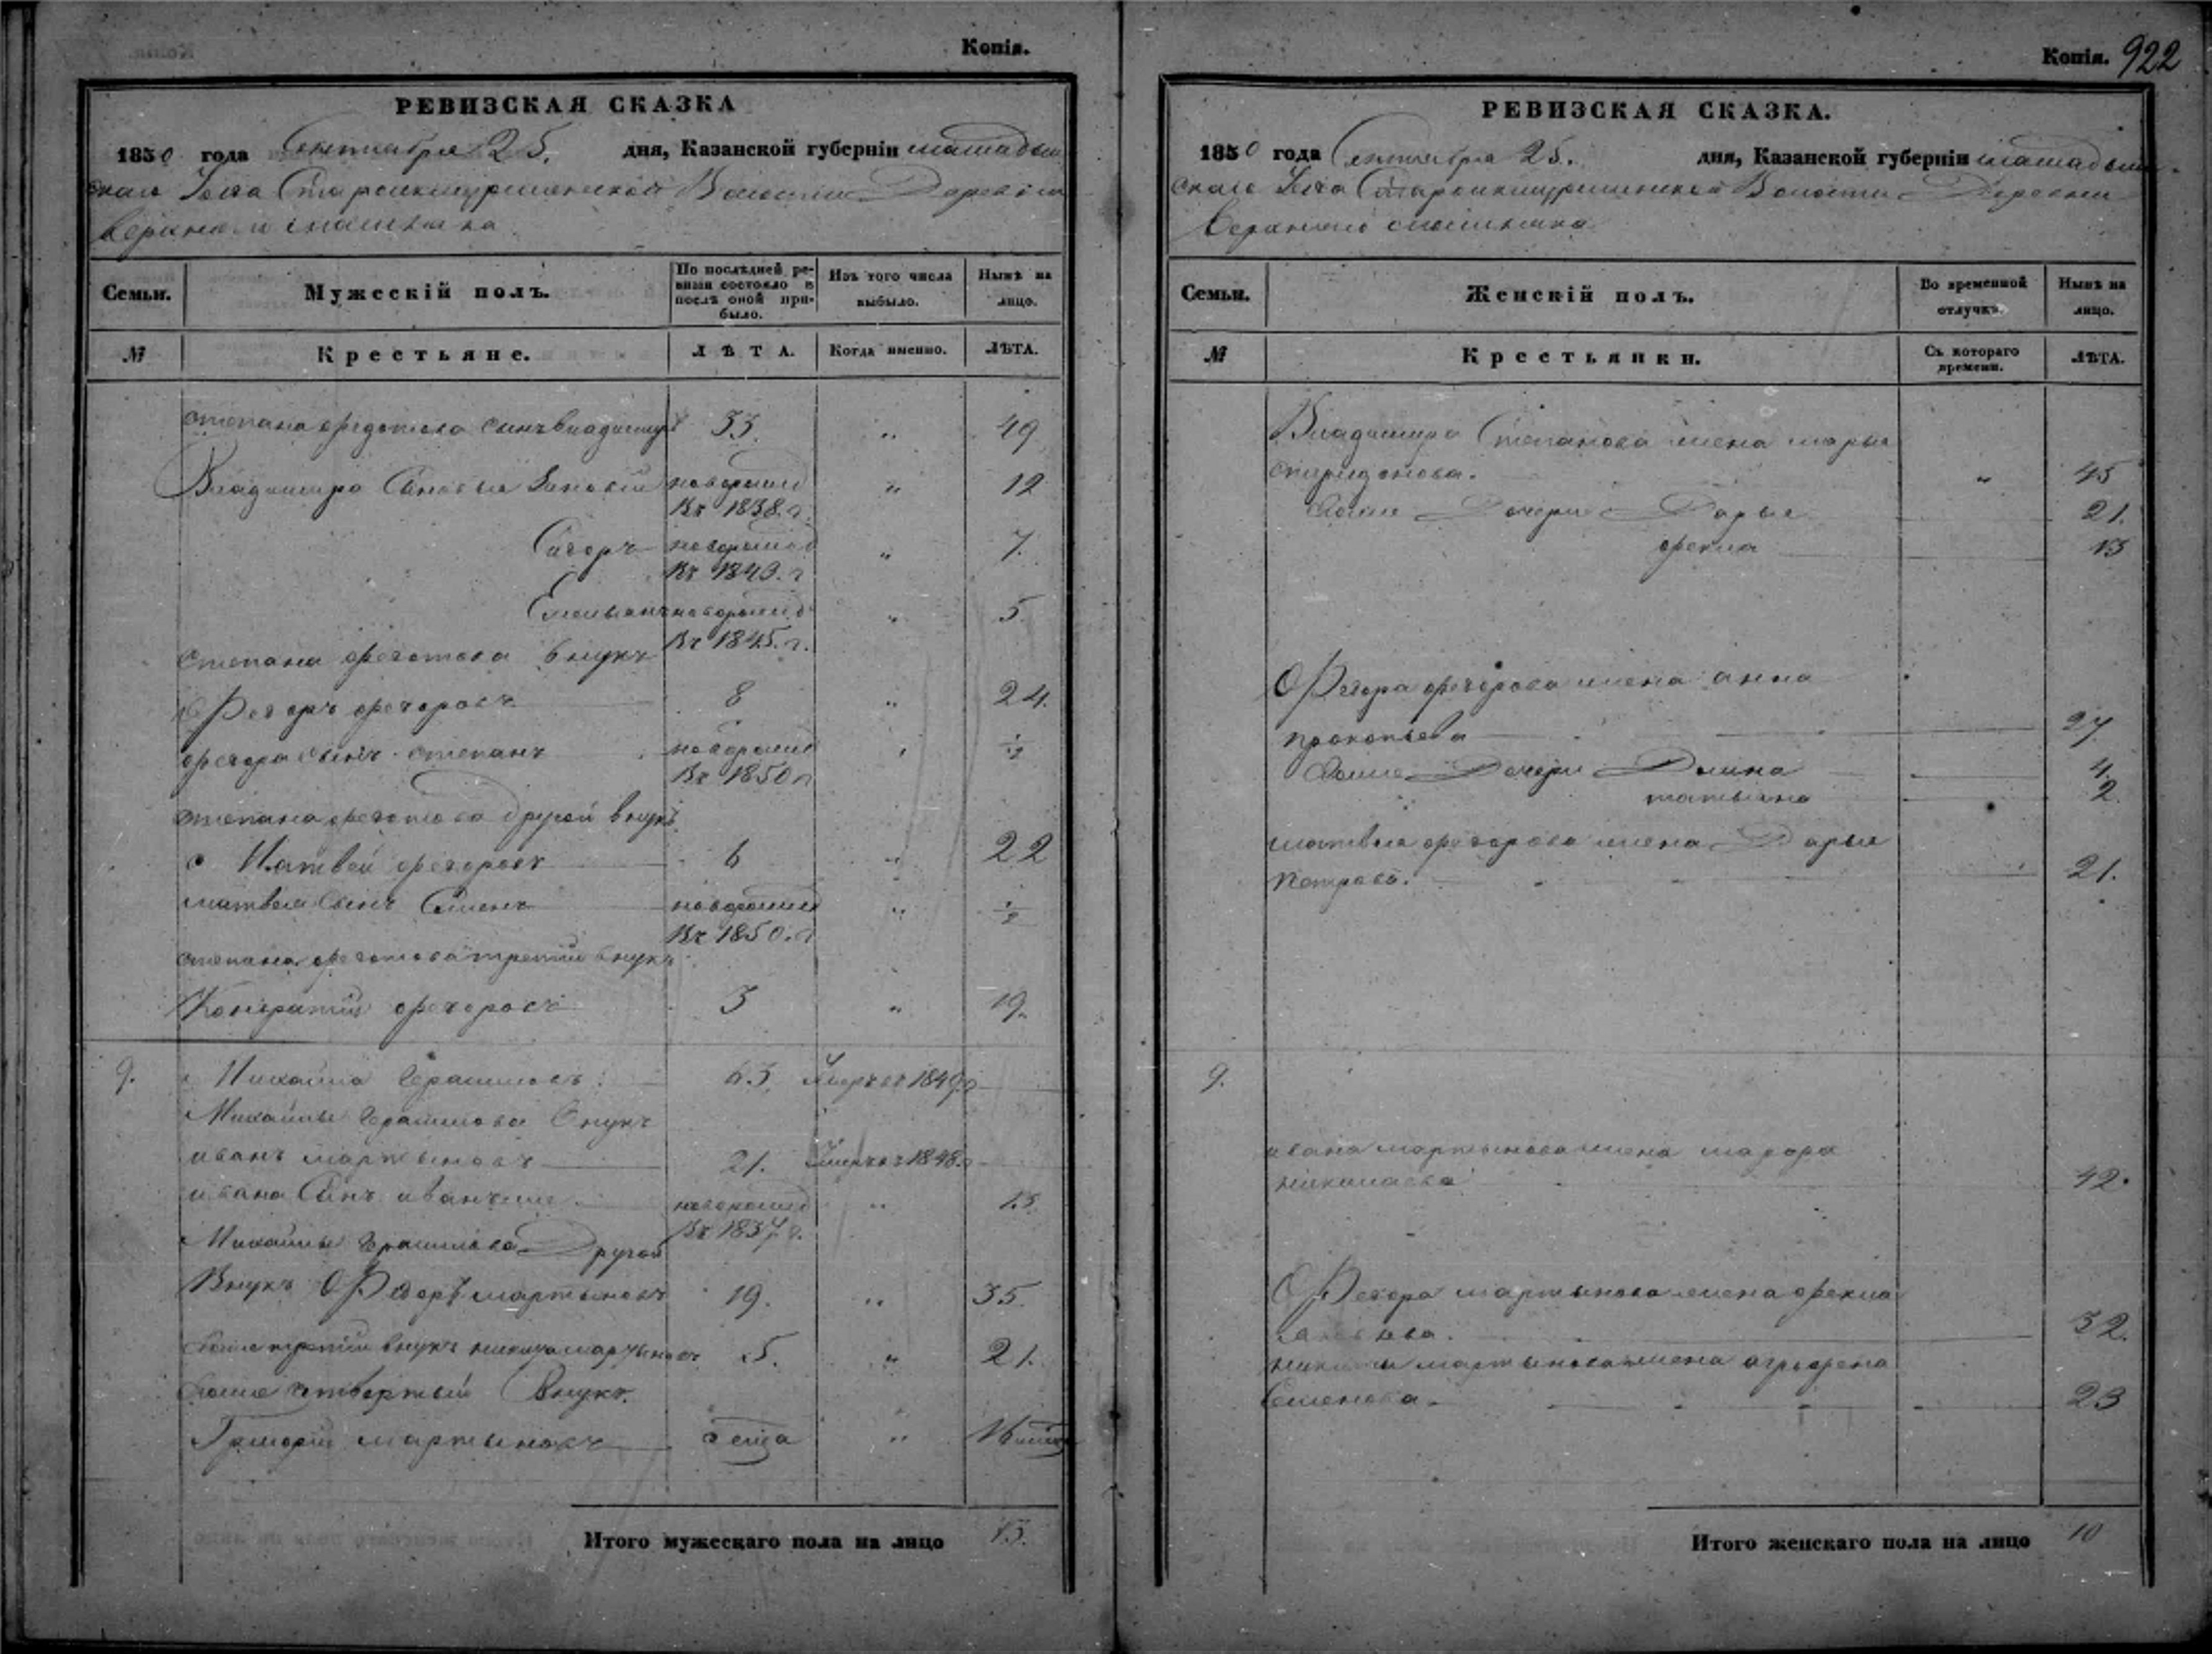 Копія.
РЕВИЗСКАЯ СКАЗКА
1850 года Сентября 25. дня, Казанской губерніи мамадыш
скаго Уезда Волости Деревни
верхнего
Семьи.
Мужескій полъ.
По послѣдней ре-
визіи состояло и
послѣ оной при-
было.
Изъ того числа
выбыло.
Нынѣ на
лицо.
№
Крестьяне.
ЛѢТА.
Когда именно.
ЛѢТА.
степана федотова сынъ владимиръ 33. " 49
Владимира Сыновья Зиновей новорожд " 12
Въ 1838. г.
Сидоръ новорожд " 7.
Въ 1843. г
Емельянъ новорожд " 5
Въ 1845. г.
степана федотова внукъ
Федоръ федоровъ 8 " 24.
федора сынъ степанъ новорожд " 1/2
Въ 1850 г
степана федотова другой внукъ
Матвей федоровъ 6 " 22
матвея сынъ Семенъ новорожд " 1/2
Въ 1850. г
степана федотова третий внукъ
Кондратий федоровъ 3 " 19.
9. Михайла Герасимовъ 63. Умеръ въ 1849 г
Михайлы Герасимова Внукъ
иванъ мартыновъ 21. Умеръ въ 1848 г
ивана Сынъ иванъ же новорожд " 13.
Въ 1837 г.
Михайлы Герасимова Другой
Внукъ Федоръ мартыновъ 19. " 35.
его же третий внукъ никита мартыновъ 5. " 21.
его же четвертый Внукъ
Григорий мартыновъ " 16
Итого мужескаго пола на лицо 13.
Копія. 922
РЕВИЗСКАЯ СКАЗКА.
1850 года Сентября 25. дня, Казанской губерніи мамадыш
скаго Уезда Волости Деревни
Верхнего
Семьи.
Женскій полъ.
Во временной
отлучкѣ.
Нынѣ на
лицо.
№
Крестьянки.
Съ котораго
времени.
ЛѢТА.
Владимира Степанова жена марья
спиридонова. " 45
Дочери Дарья 21.
фекла 13
Федора федорова жена анна
прокопьева 27
Дочери 4.
татьяна 2.
матвея федорова жена Дарья
Петрова. 21.
9.
ивана мартынова жена
николаева 42.
Федора мартынова жена фекла
32.
никиты мартынова жена агрофена
Семенова. 23
Итого женскаго пола на лицо 10